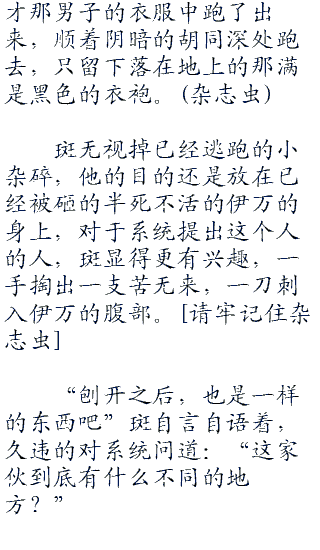 才那男子的衣服中跑了出
来，顺着阴暗的胡同深处跑
去，只留下落在地上的那满
是黑色的衣袍。(杂志虫)
斑无视掉已经逃跑的小
杂碎，他的目的还是放在已
经被砸的半死不活的伊万的
身上，对于系统提出这个人
的人，斑显得更有兴趣，一
手掏出一支苦无来，一刀刺
入伊万的腹部。[请牢记住杂
志虫]
“刨开之后，也是一样
的东西吧”斑自言自语着，
久违的对系统问道：“这家
伙到底有什么不同的地
方？”